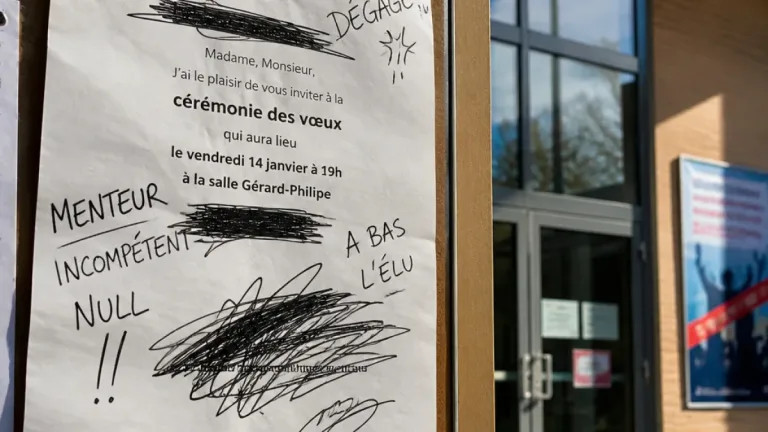 DÉGAGE !!
Madame, Monsieur,
J'ai le plaisir de vous inviter à la
cérémonie des vœux
qui aura lieu
le vendredi 14 janvier à 19h
à la salle Gérard-Philipe
MENTEUR
INCOMPÉTENT
NULL
!!
A BAS
L'ÉLU